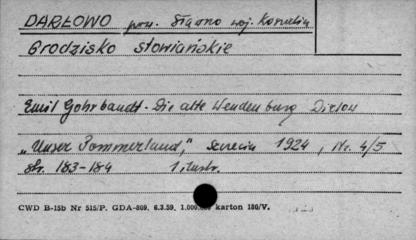 DARŁOWO pow. Sławno woj. Koszalin
Grodzisko słowiańskie
Emil Gohrbandt - Die alte Wendenburg Dirlow
"Unser Pommerland," Szczecin 1924, Nr. 4/5
str. 183-184 1 ilustr.
CWD B-15b Nr 515/P. GDA-809. 6.3.59. 1.000.000 karton 180/V.